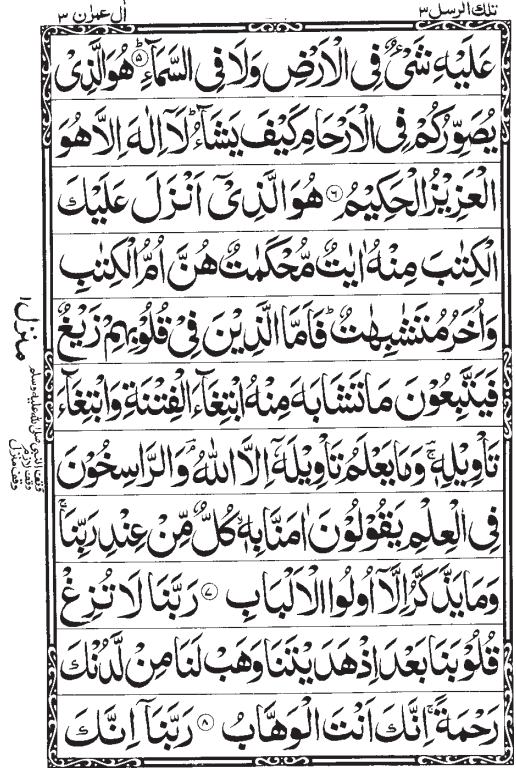 تلك الرسل ٣
اٰل عمرٰن ٣
عَلَيْهِ شَىْءٌ فِى الْاَرْضِ وَلَا فِى السَّمَآءِ ۝٥ هُوَ الَّذِىْ
يُصَوِّرُكُمْ فِى الْاَرْحَامِ كَيْفَ يَشَآءُ ؕ لَآ اِلٰهَ اِلَّا هُوَ
الْعَزِيْزُ الْحَكِيْمُ ۝٦ هُوَ الَّذِىْٓ اَنْزَلَ عَلَيْكَ
الْكِتٰبَ مِنْهُ اٰيٰتٌ مُّحْكَمٰتٌ هُنَّ اُمُّ الْكِتٰبِ
وَاُخَرُ مُتَشٰبِهٰتٌ ؕ فَاَمَّا الَّذِيْنَ فِىْ قُلُوْبِهِمْ زَيْغٌ
فَيَتَّبِعُوْنَ مَا تَشَابَهَ مِنْهُ ابْتِغَآءَ الْفِتْنَةِ وَابْتِغَآءَ
تَاْوِيْلِهٖ ۚ وَمَا يَعْلَمُ تَاْوِيْلَهٗٓ اِلَّا اللّٰهُ ؔ وَالرَّاسِخُوْنَ
فِى الْعِلْمِ يَقُوْلُوْنَ اٰمَنَّا بِهٖ ۙ كُلٌّ مِّنْ عِنْدِ رَبِّنَا ۚ
وَمَا يَذَّكَّرُ اِلَّآ اُولُوا الْاَلْبَابِ ۝٧ رَبَّنَا لَا تُزِغْ
قُلُوْبَنَا بَعْدَ اِذْ هَدَيْتَنَا وَهَبْ لَنَا مِنْ لَّدُنْكَ
رَحْمَةً ۚ اِنَّكَ اَنْتَ الْوَهَّابُ ۝٨ رَبَّنَآ اِنَّكَ
منزل ١
وقف النبى صلى الله عليه وسلم
وقف لازم
وقف منزل